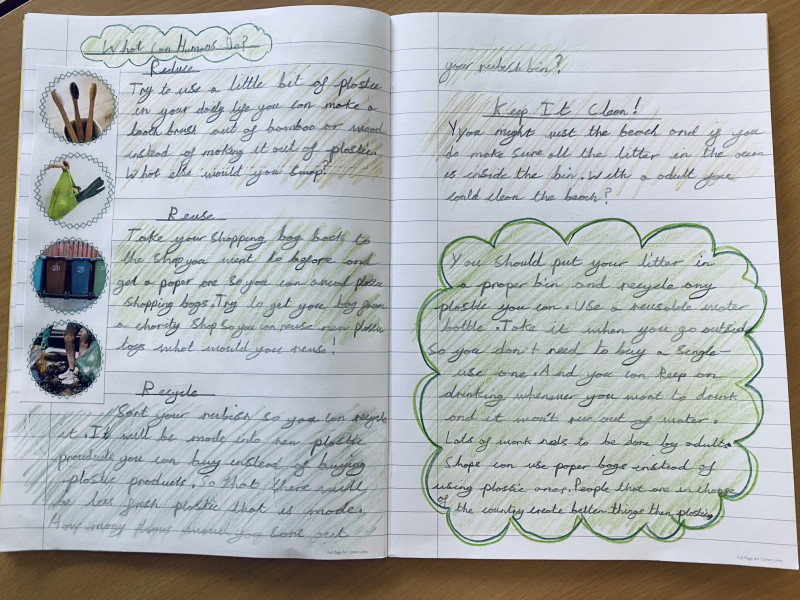 What Can Humans Do?
Reduce
Try to use a little bit of plastic
in your daily lye you can make a
tooth brush out of bamboo or wood
instead of making it out of plastic.
What else would you swap?
Reuse
Take your shopping bag back to
the shop you went to before and
get a paper one so you can avoid plastic
shopping bags. Try to get you bag from
a charity shop so you can reuse new plastic
what would you reuse!
Recycle
Sort your rubish so you can recycle
it. It will be made into new plastic
you can buy instead of buying
plastic products. So that there will
be less fresh plastic that is made.
How many times would you sort out
your rubish bin?
Keep It Clean!
you might visit the beach and if you
do make sure all the litter in the ocean
is inside the bin. With a adult you
could clean the beach?
You should put your litter in
a proper bin and recycle any
plastic you can. Use a reusable water
bottle. Take it when you go outside
so you don't need to buy a single-
use one. And you can keep on
drinking whenever you want to drink
and it won't run out of water.
Lots of work to be done by adults.
Shops can use paper bags instead of
using plastic ones. People that are in charge
of the country create better things then plastic.